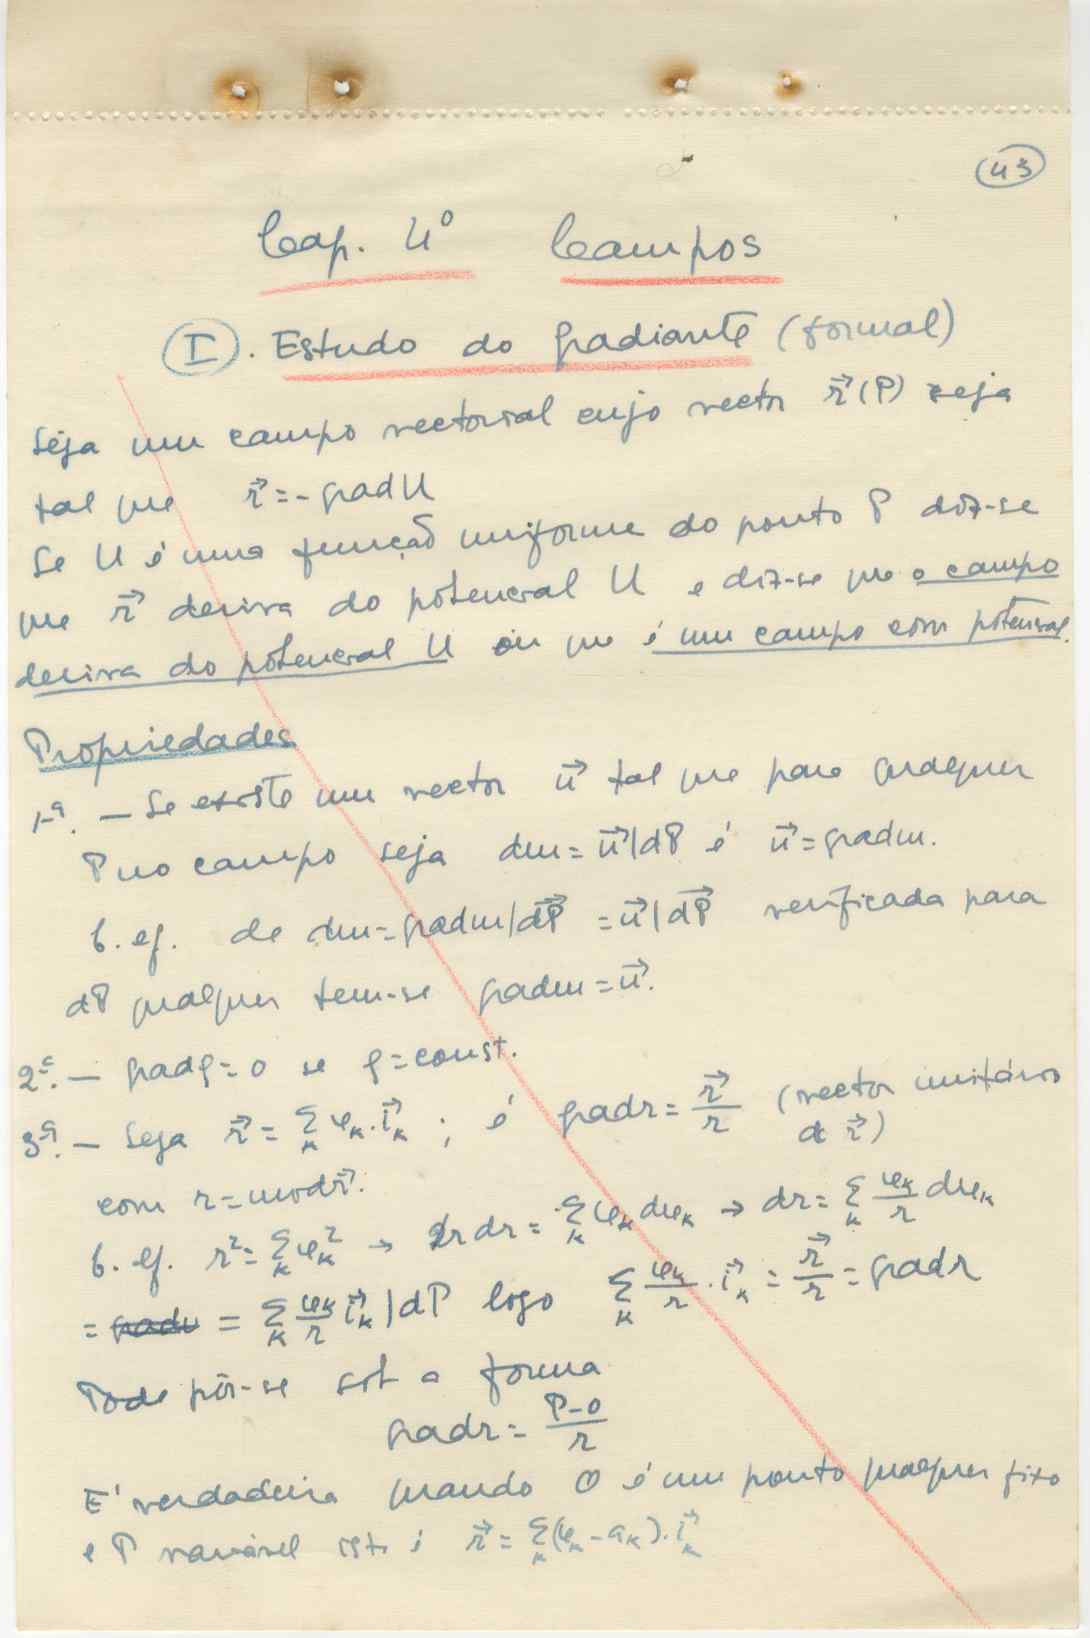 43
Cap. 4º Campos
I. Estudo do gradiante (formal)
Seja um campo vectorial cujo vector r⃗(P) seja
tal que r⃗ = - grad U
Se U é uma função uniforme do ponto P diz-se
que r⃗ deriva do potencial U e diz-se que o campo
deriva do potencial U ou que é um campo com potencial.
Propriedades
1ª. — Se existe um vector u⃗ tal que para qualquer
P no campo seja dm = u⃗|dP é u⃗ = grad m.
C. ef. de dm = grad m|dP⃗ = u⃗|dP⃗ verificada para
dP qualquer tem-se grad m = u⃗.
2ª. — grad φ = 0 se φ = const.
3ª. — Seja r⃗ = Σₖ φₖ.i⃗ₖ ; é grad r = r⃗/r (vector unitário
de r⃗)
com r = mod r⃗.
C. ef. r² = Σₖ φₖ² → 2r dr = 2Σₖ φₖ dφₖ → dr = Σₖ φₖ/r dφₖ
= = Σₖ φₖ/r i⃗ₖ|dP logo Σₖ φₖ/r . i⃗ₖ = r⃗/r = grad r
Pode pôr-se sob a forma
grad r = P-O/r
E' verdadeira quando O é um ponto qualquer fixo
e P variável isto é r⃗ = Σₖ(φₖ - aₖ).i⃗ₖ